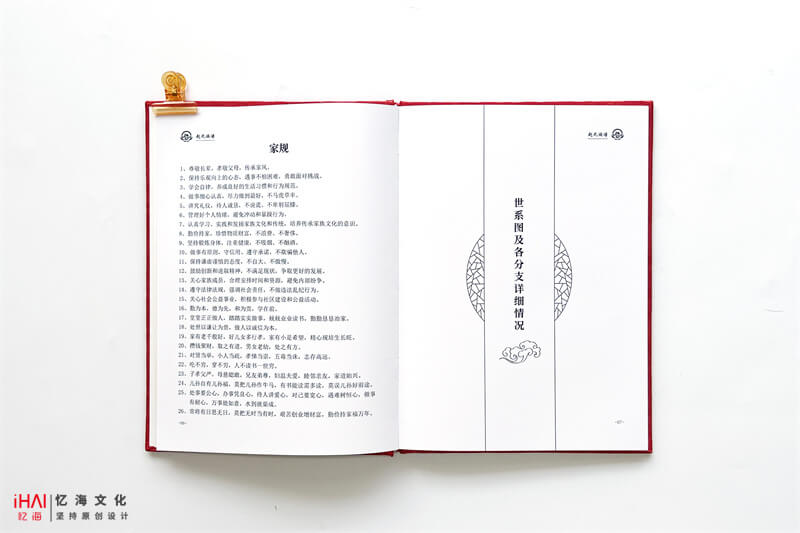 赵氏族谱
家规
1、尊敬长辈，孝敬父母，传承家风。
2、保持乐观向上的心态，遇事不怕困难，勇敢面对挑战。
3、学会自律，养成良好的生活习惯和行为规范。
4、做事细心认真，尽力做到最好，不马虎草率。
5、讲究礼仪，待人诚恳，不说谎，不卑躬屈膝。
6、管理好个人情绪，避免冲动和暴躁行为。
7、认真学习、实践和发扬家族文化和传统，培养传承家族文化的意识。
8、勤俭持家，珍惜物质财富，不浪费、不奢侈。
9、坚持锻炼身体，注重健康，不吸烟、不酗酒。
10、做事有原则，守信用，遵守承诺，不欺骗他人。
11、保持谦虚谨慎的态度，不自大、不傲慢。
12、鼓励创新和进取精神，不满足现状，争取更好的发展。
13、关心家族成员，合理安排时间和资源，避免内部纷争。
14、遵守法律法规，强调社会责任，不做违法乱纪行为。
15、关心社会公益事业，积极参与社区建设和公益活动。
16、勤为本，德为先，和为贵，学在前。
17、堂堂正正做人，踏踏实实做事，兢兢业业读书，勤勤恳恳治家。
18、处世以谦让为贵，做人以诚信为本。
19、家有老千般好，好儿女多行孝，家有小是希望，精心规培生长旺。
20、攒钱聚财，取之有道，男女老幼，处之有方。
21、对贤当举，小人当疏，孝悌当崇，五毒当诛，志存高远。
22、吃不穷，穿不穷，人不读书一世穷。
23、子孝父严，母慈媳敏，兄友弟尊，妇温夫爱，睦邻亲友，家道始兴。
24、儿孙自有儿孙福，莫把儿孙作牛马，有书能读需多读，莫误儿孙好前读。
25、处事要公心，办事凭良心，待人讲爱心，对己要宽心，遇难树恒心，做事
有耐心，万事处如意，水到渠渠成。
26、常将有日思无日，莫把无时当有时，艰苦创业增财富，勤俭持家福万年。
-06-
赵氏族谱
世系图及各分支详细情况
-07-
iHAI 忆海文化
忆海 坚持原创设计